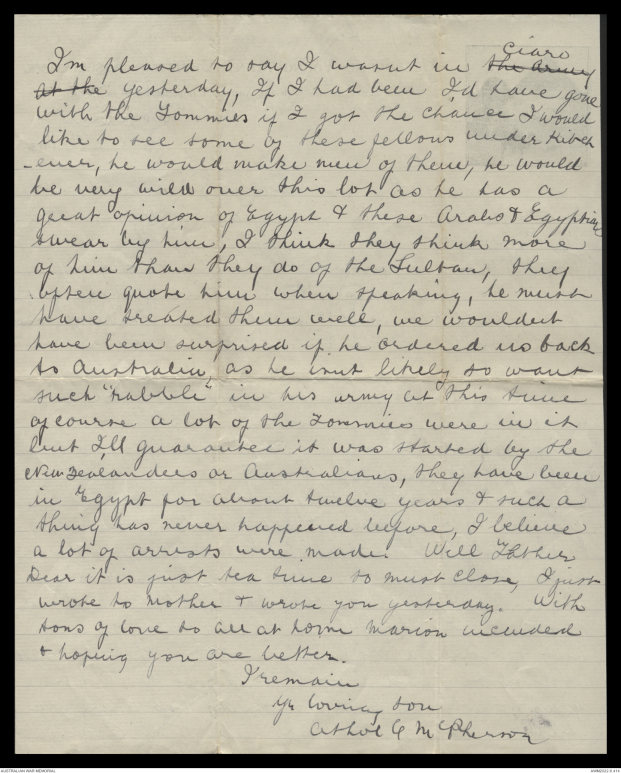 Ciaro
I'm pleased to say I wasnt in the Army
at the yesterday, If I had been I'd have gone
with the Tommies if I got the chance I would
like to see some of these fellows under Kitch
-ener, he would make men of them, he would
be very wild over this lot as he has a
great opinion of Egypt & these Arabs & Egyptians
swear by him, I think they think more
of him than they do of the Sultan, they
often quote him when speaking, he must
have treated them well, we wouldnt
have been surprised if he ordered us back
to Australia, as he isnt likely to want
such "rabble" in his army at this time
of course a lot of the Tommies were in it
but I'll guarantee it was started by the
New Zealanders or Australians, they have been
in Egypt for about twelve years & such a
thing has never happened before, I believe
a lot of arrests were made. Well Father
Dear it is just tea time so must close, I just
wrote to Mother & wrote you yesterday. With
tons of love to all at home Marion included
& hoping you are better.
I remain
Yr loving son
Athol G McPherson
AUSTRALIAN WAR MEMORIAL